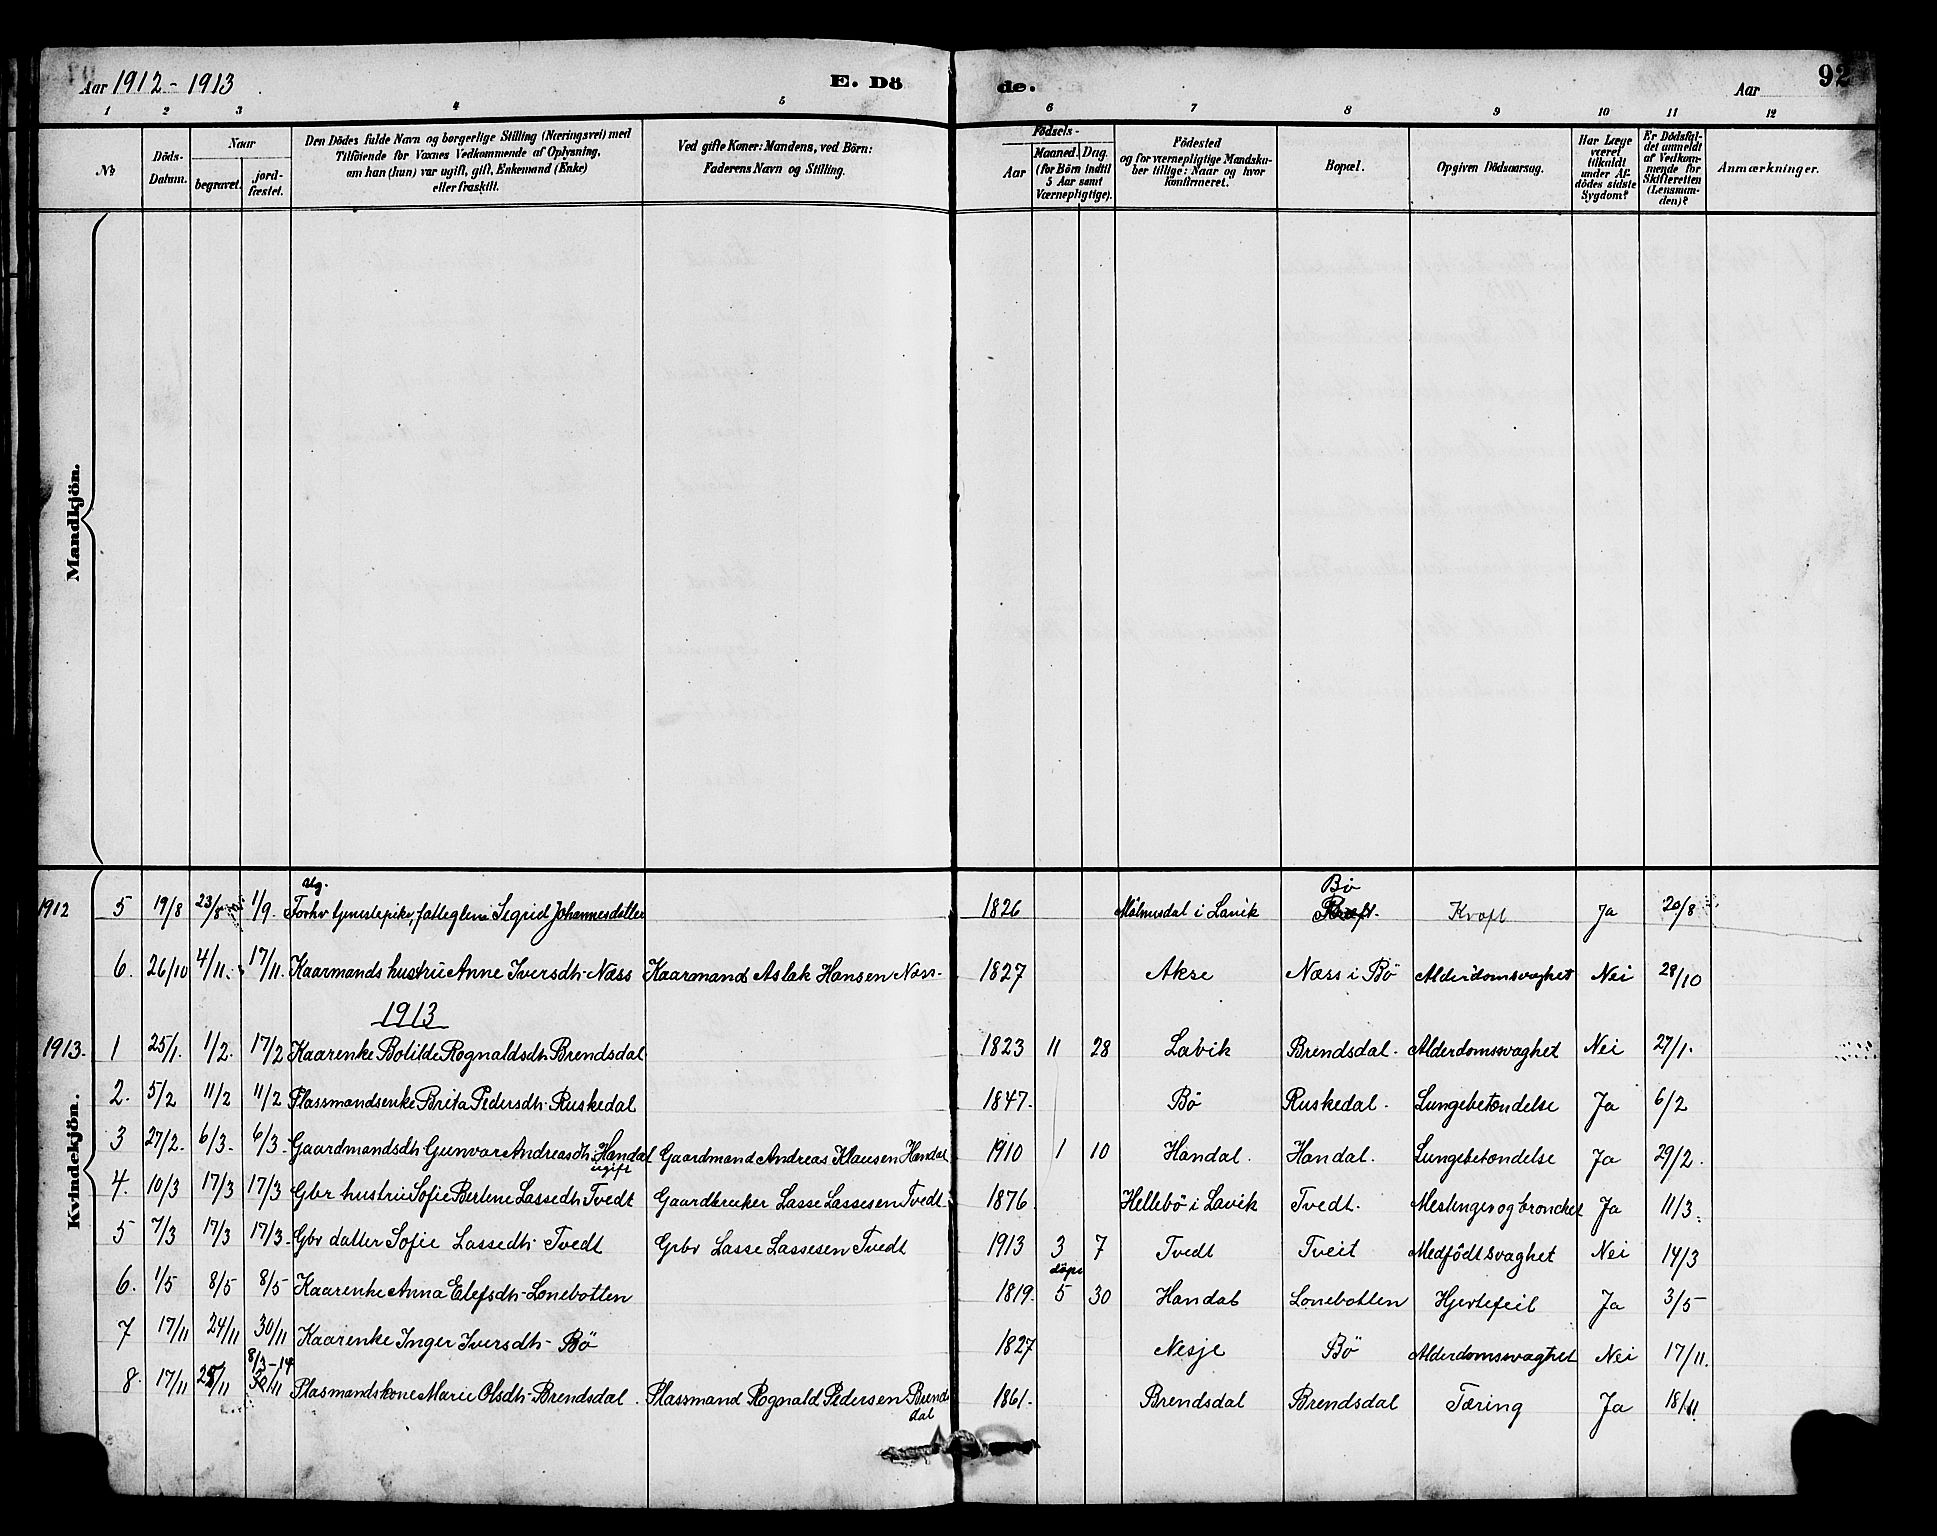 Aar 1912 - 1913 E. Dö de. Aar 92
1 2 3 4 5 6 7 8 9 10 11 12
No Döds-Datum. Naar begravet. jord-fæstet. Den Dödes fulde Navn og borgerlige Stilling (Næringsvei) med Tilföiende for Voxnes Vedkommende af Oplysning, om han (hun) var ugift, gift, Enkemand (Enke) eller fraskilt. Ved gifte Koner: Mandens, ved Börn: Faderens Navn og Stilling. Födsels- Aar Maaned. Dag. (for Börn indtil 5 Aar samt Værnepligtige). Födested og for værnepligtige Mandsku-ber tillige: Naar og hvor konfirmeret. Bopæl. Opgiven Dödsaarsag. Har Læge været tilkaldt under Af-dödes sidste Sygdom? Er Dödsfal-det anmeldt af Vedkom-mende for Skifteretten (Lensman-den)? Anmærkninger.
Mandkjön.
Kvindekjön.
1912 5 19/8 23/8 1/9. Ug. Forhv tjenestepike, fatteglem Segrid Johannesdatter 1826 Mölmesdal i Lavik Bö Kræft Ja 20/8
6. 26/10 4/11. 17/11. Kaarmands hustru Anne Iversdtr. Næss Kaarmand Aslak Hansen Næss. 1827 Akse Næss i Bö Alderdomsvaghet Nei 28/10
1913
1913. 1 25/1. 1/2. 17/2 Kaarenke Bolilde Rognaldsdtr. Brendsdal 1823 11 28 Lavik Brendsdal. Alderdomssvaghet Nei 27/1.
2. 5/2 11/2 11/2 Plassmandsenke Brita Pedersdtr. Ruskedal 1847. Bö Ruskedal. Lungebetændelse Ja 6/2
3 27/2. 6/3. 6/3. Gaardmandsdtr. Gunvor Andreasdtr. Handal ugift Gaardmand Andreas Klausen Handal 1910 1 10 Handal. Handal. Lungebetændelse Ja 29/2.
4. 10/3 17/3 17/3 Gbr hustru Sofie Bertine Lassedtr. Tvedt Gaardbruker Lasse Lassesen Tvedt. 1876 Hellebö i Lavik Tvedt. Meslinger og bronchit Ja 11/3.
5 7/3 17/3 17/3. Gbr datter Sofie Lassedtr. Tvedt Grbr Lasse Lassesen Tvedt 1913 3 7 Tvedt Tveit Medfödt svaghet Nei 14/3
6. 1/5 8/5 8/5 Kaarenke Anna Elefsdtr. Lonebotten 1819. döpt 5 30 Handal Lonebotten Hjertefeil Ja 3/5
7 17/11 24/11 30/11 Kaarenke Inger Iversdtr. Bö 1827 Nesje Bö Alderdomssvaghet Nei 17/11.
8. 17/11 25/11 8/3-14 30/11 Plasmandskone Marie Olsdtr. Brendsdal. Plassmand Rognald Pedersen Brendsdal 1861. Brendsdal Brendsdal Tæring Ja 18/11.